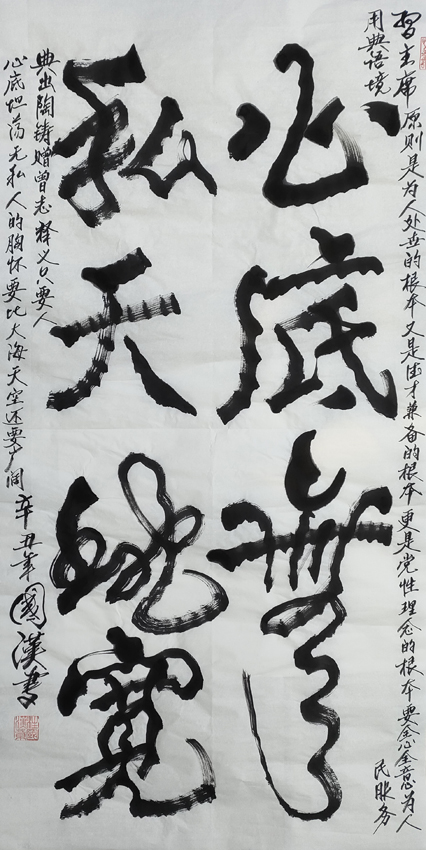 習主席
用典语境
原则是为人处世的根本又是德才兼备的根本更是党性理念的根本要全心全意为人
民服务
心底無
私天地寬
典出陶铸赠曾志释义只要人
心底坦荡无私人的胸怀要比大海天空还要广阔辛丑年國漢書